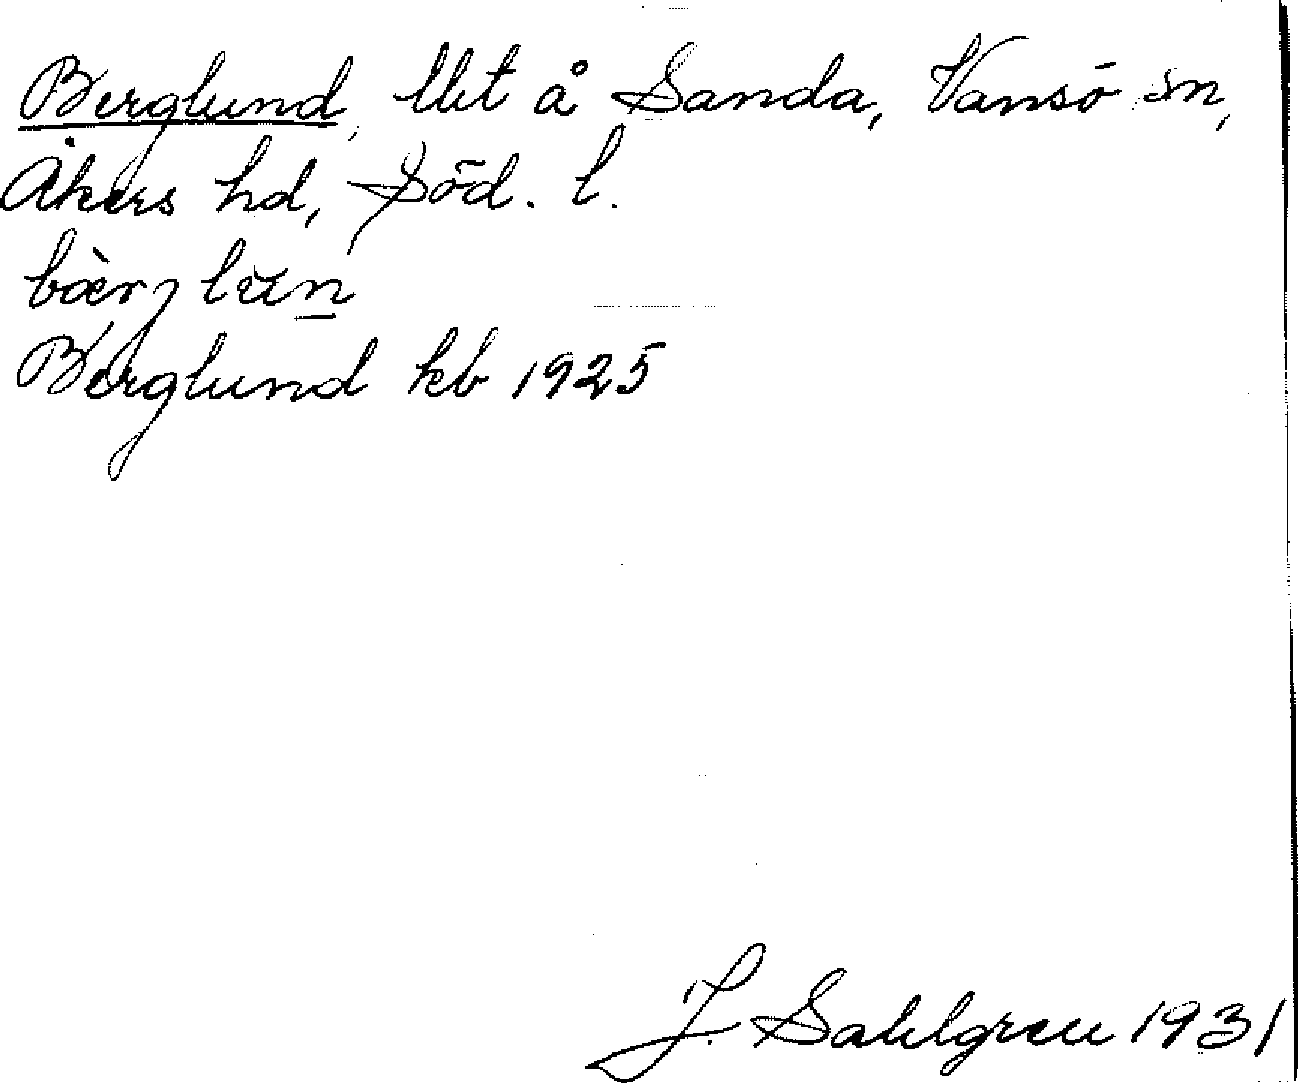 Berglund, lht å Sanda, Vansö sn,
Åkers hd, Söd. l.
bær̀glun
Berglund kb 1925
J. Sahlgren 1931